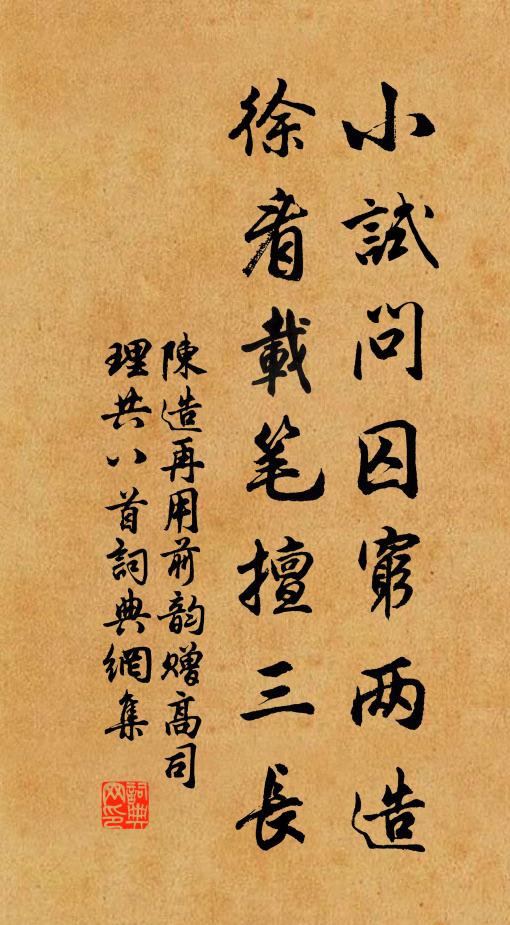 小試問囚窮两造
徐看載笔擅三長
陳造再用前韵贈高司
理共八首詞典網集
詞典网印